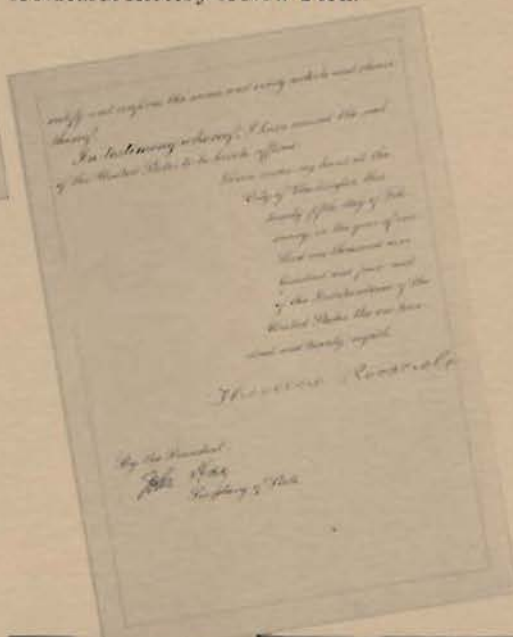 ratify and confirm the same and every article and clause
thereof.
In testimony whereof, I have caused the seal
of the United States to be hereto affixed.
Given under my hand at the
City of Washington this
twenty fifth day of Feb-
ruary in the year of our
Lord one thousand nine
hundred and four and
of the Independence of the
United States the one hun-
dred and twenty eighth.
Theodore Roosevelt
By the President:
John Hay
Secretary of State